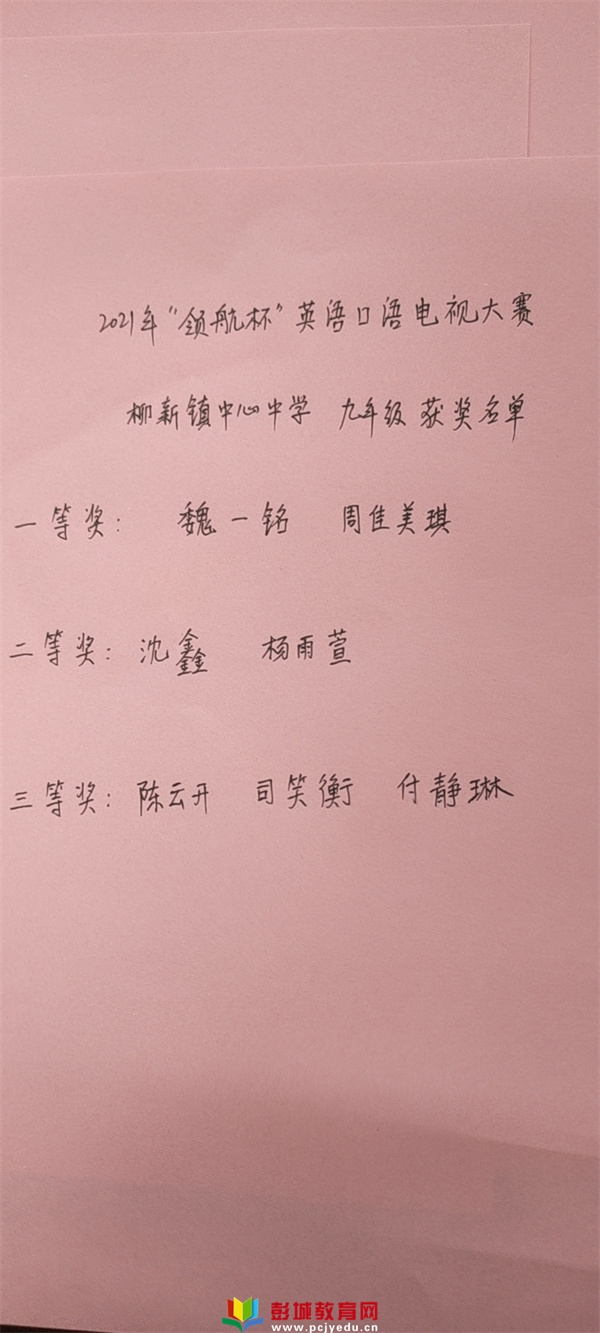 2021年“领航杯”英语口语电视大赛
柳新镇中心中学 九年级 获奖名单
一等奖： 魏一铭 周佳美琪
二等奖：沈鑫 杨雨萱
三等奖：陈云开 司笑衡 付静琳
彭城教育网
www.pcjyedu.cn